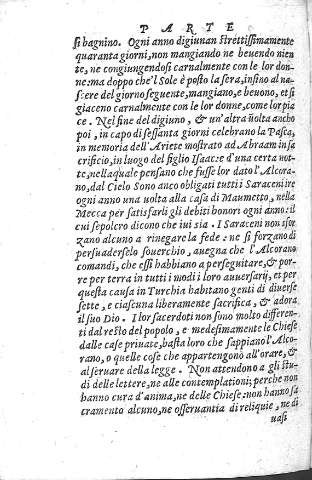 PARTE
si bagnino. Ogni anno digiunan strettissimamente
quaranta giorni, non mangiando ne beuendo nien
te, ne congiungendosi carnalmente con le lor don
ne: ma doppo che'l Sole è posto la sera, insino al na
scere del giorno seguente, mangiano, e beuono, et si
giaceno carnalmente con le lor donne, come lor pia
ce. Nel fine del digiuno, & un'altra uolta ancho
poi, in capo di sessanta giorni celebrano la Pasca,
in memoria dell'Ariete mostrato ad Abraam in sa
crificio, in luogo del figlio Isaac: e d'una certa not-
te, nella quale pensano che fusse lor dato l'Alcora-
no, dal Cielo Sono anco obligati tutti i Saraceni ire
ogni anno una uolta alla casa di Maumetto, nella
Mecca per satisfarli gli debiti honori ogni anno: il
cui sepolcro dicono che iui sia. I Saraceni non sfor
zano alcuno a rinegare la fede: ne si forzano di
persuaderselo souerchio, auegna che l'Alcorano
comandi, che essi habbiano a perseguitare, & por-
re per terra in tutti i modi i loro auuersarij, et per
questa causa in Turchia habitano genti di diuerse
sette, e ciascuna liberamente sacrifica, & adora
il suo Dio. I lor sacerdoti non sono molto differen-
ti dal resto del popolo, e medesimamente le Chiese
dalle case priuate, basta loro che sappiano l'Alco-
rano, o quelle cose che appartengono all'orare, &
al seruare della legge. Non attendono a gli stu-
di delle lettere, ne alle contemplationi; perche non
hanno cura d'anima, ne delle Chiese: non hanno sa
cramento alcuno, ne osseruantia di reliquie, ne di
uasi